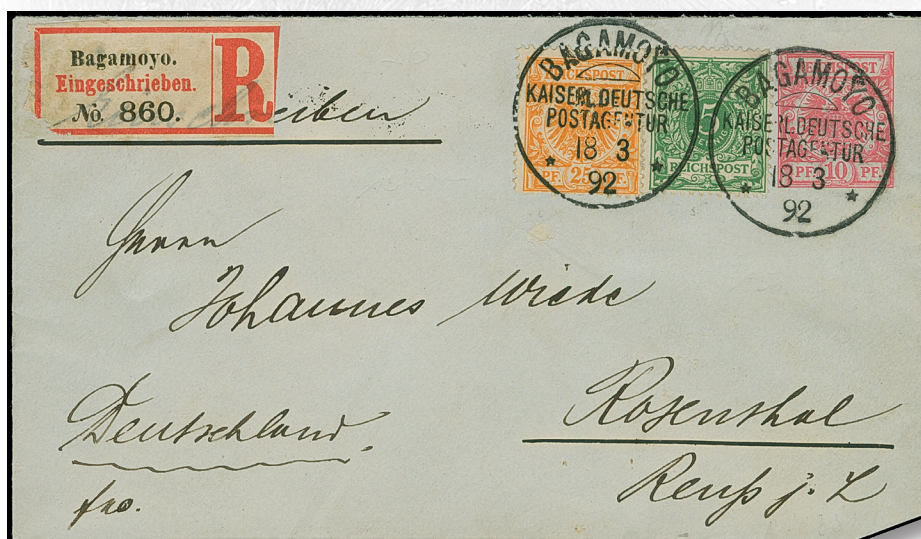 Bagamoyo.
Eingeschrieben.
No. 860.
R
eiben
BAGAMOYO
KAISERL. DEUTSCHE
POSTAGENTUR
18 3
92
REICHSPOST
PF. 25 PF.
5
REICHSPOST
BAGAMOYO
KAISERL. DEUTSCHE
POSTAGENTUR
18 3
92
REICHSPOST
PF. 10 PF.
Herrn
Johannes Wiede
Rosenthal
Deutschland.
Reuß j. L
fro.